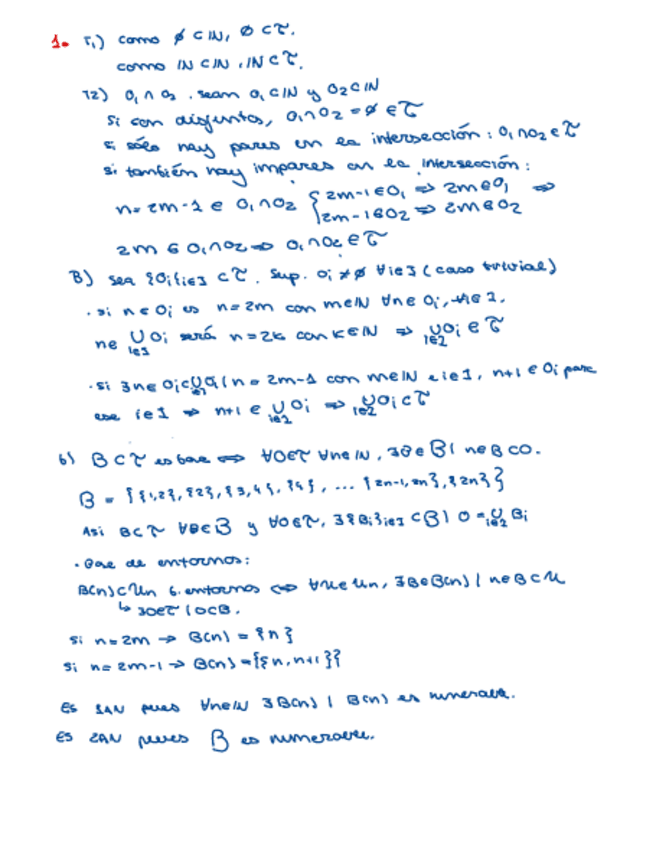 1. T1) como ∅ ⊂ ℕ, ∅ ⊂ τ.
como ℕ ⊂ ℕ, ℕ ⊂ τ.
T2) O₁ ∩ O₂. sean O₁ ⊂ ℕ y O₂ ⊂ ℕ
si son disjuntos, O₁∩O₂ = ∅ ∈ τ
si sólo hay pares en la intersección: O₁∩O₂ ∈ τ
si también hay impares en la intersección:
n = 2m-1 ∈ O₁∩O₂ { 2m-1 ∈ O₁ ⇒ 2m ∈ O₁ ⇒
2m-1 ∈ O₂ ⇒ 2m ∈ O₂
2m ∈ O₁∩O₂ ⇒ O₁∩O₂ ∈ τ
B) sea {Oi}i∈I ⊂ τ. Sup. Oi ≠ ∅ ∀i∈I (caso trivial)
· si n ∈ Oi es n = 2m con m∈ℕ ∀n∈Oi, ∀i∈I.
n∈ ⋃i∈I Oi será n = 2k con k∈ℕ ⇒ ⋃i∈I Oi ∈ τ
· si ∃n∈Oi⊂⋃Oi | n = 2m-1 con m∈ℕ e i∈I, n+1 ∈ Oi para
ese i∈I ⇒ n+1 ∈ ⋃i∈I Oi ⇒ ⋃i∈I Oi ⊂ τ
b) B ⊂ τ es base ⇔ ∀O∈τ ∀n∈ℕ, ∃B∈β | n∈B⊂O.
β = {{1,2}, {2}, {3,4}, {4}, ... {2n-1, 2n}, {2n}}
Así B⊂τ ∀B∈β y ∀O∈τ, ∃{Bi}i∈I ⊂ β | O = ⋃i∈I Bi
· Base de entornos:
B(n) ⊂ Un b. entornos ⇔ ∀U∈Un, ∃B∈B(n) | n∈B⊂U
↳ ∃O∈τ | O⊂B.
si n = 2m → B(n) = {n}
si n = 2m-1 → B(n) = {{n, n+1}}
Es 1AN pues ∀n∈ℕ ∃B(n) | B(n) es numerable.
Es 2AN pues β es numerable.